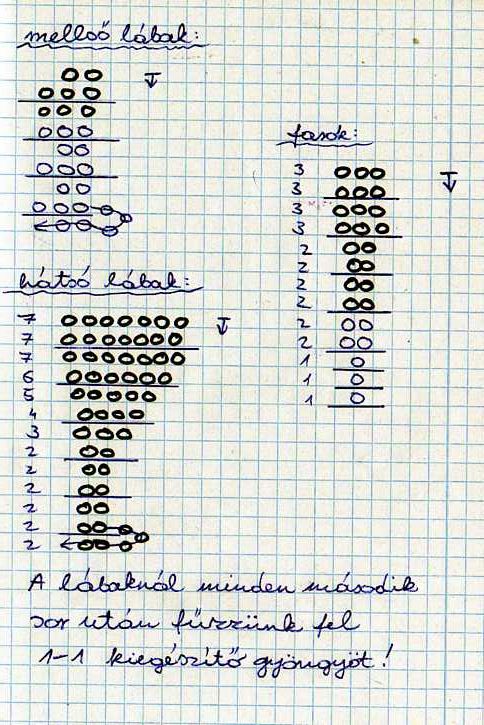 mellső lábak:
farok:
3
3
3
3
2
2
2
2
2
2
1
1
1
hátsó lábak:
7
7
7
6
5
4
3
2
2
2
2
2
2
A lábaknál minden második
sor után fűzzünk fel
1-1 kiegészítő gyöngyöt!